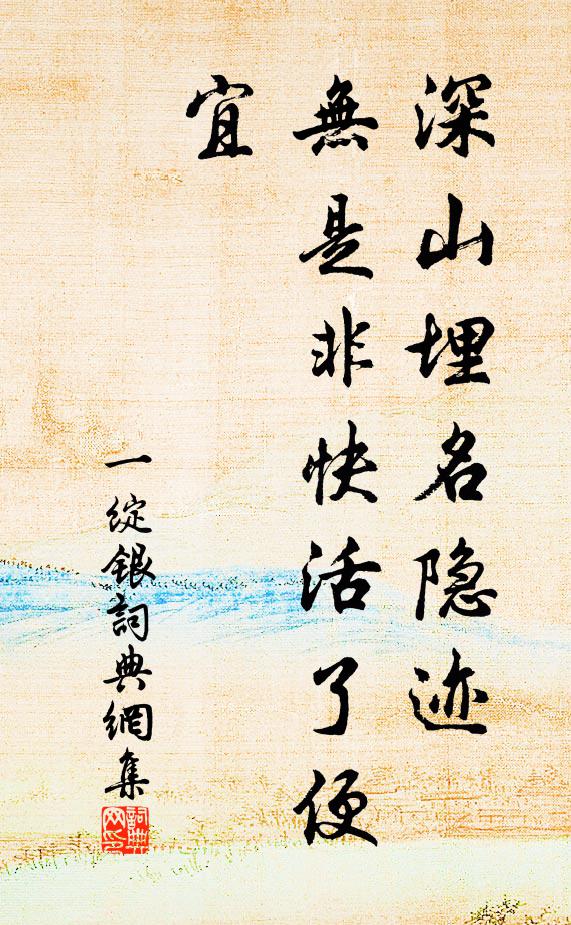 深山埋名隐迹
無是非快活了便
宜
一綻銀詞典網集
詞典
网印